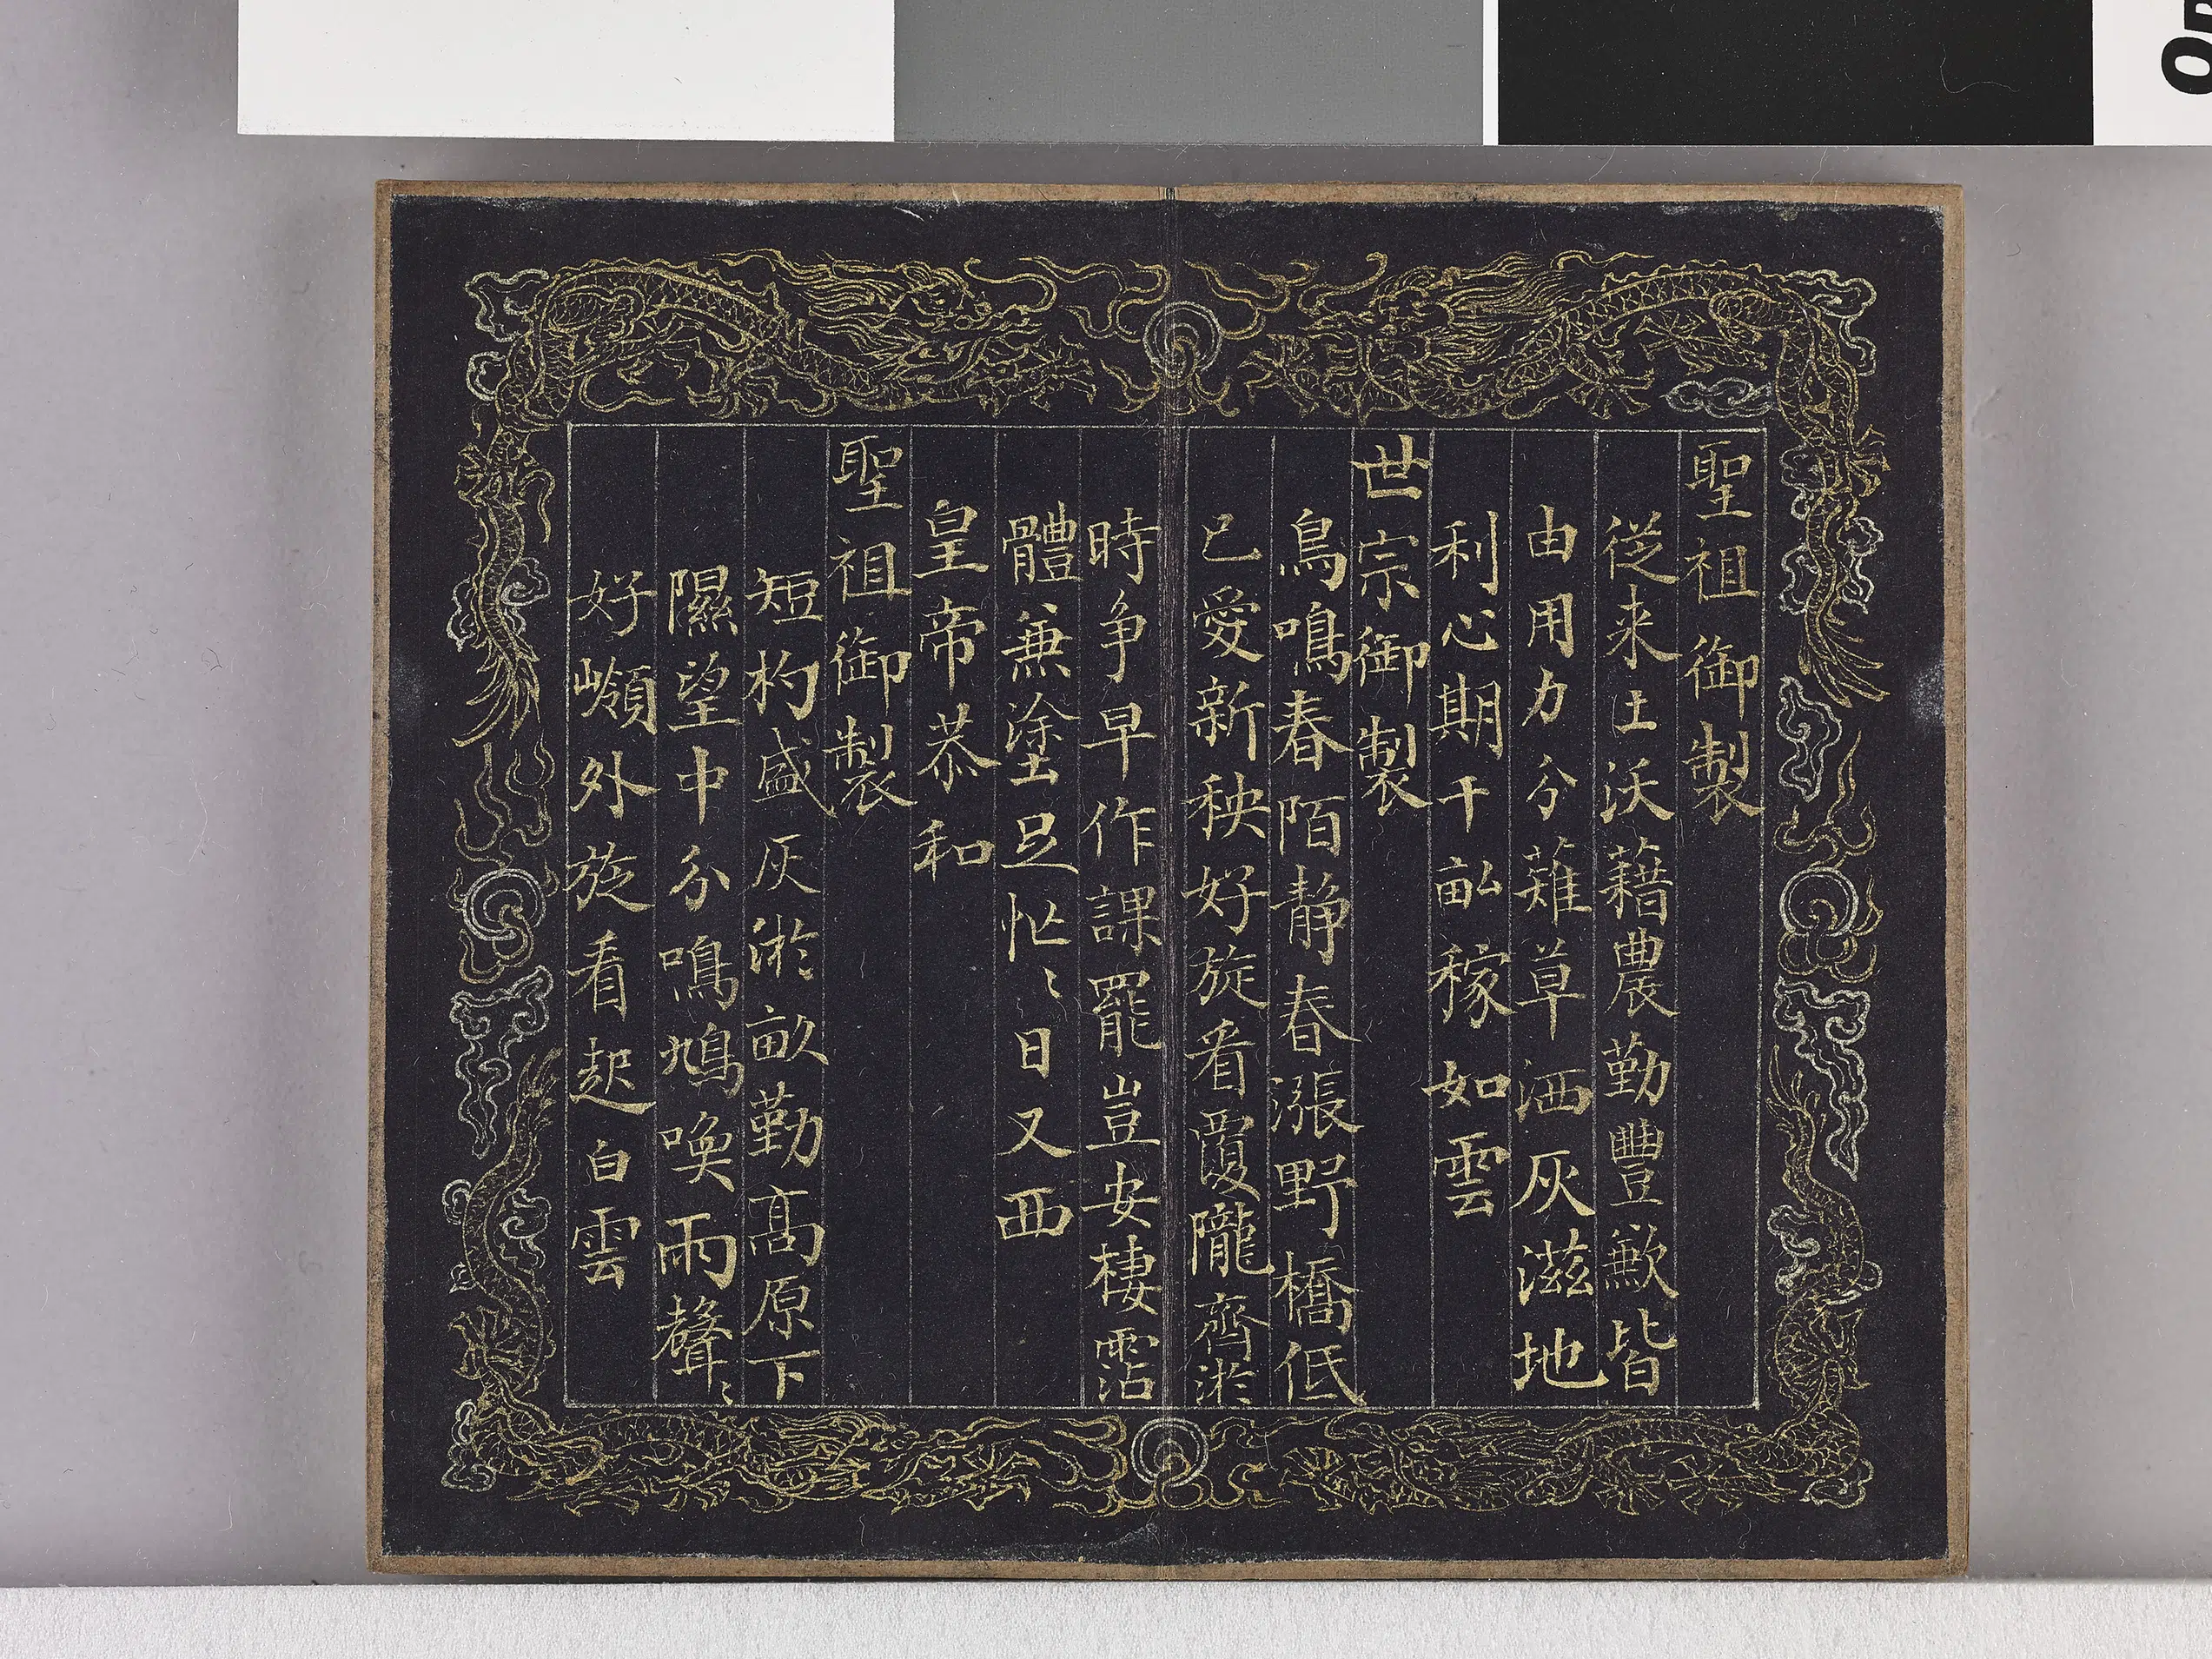 聖祖御製
從来土沃藉農勤豐歉皆
由用力分薙草洒灰滋地
利心期千畆稼如雲
世宗御製
鳥鳴春陌静春漲野橋低
已愛新秧好旋看覆隴齊淤
時争早作課罷豈安棲霑
體兼塗足忙〻日又西
皇帝恭和
聖祖御製
短杓盛灰淤畝勤髙原下
隰望中分鳴鳩喚雨聲〻
好嶺外旋看起白雲